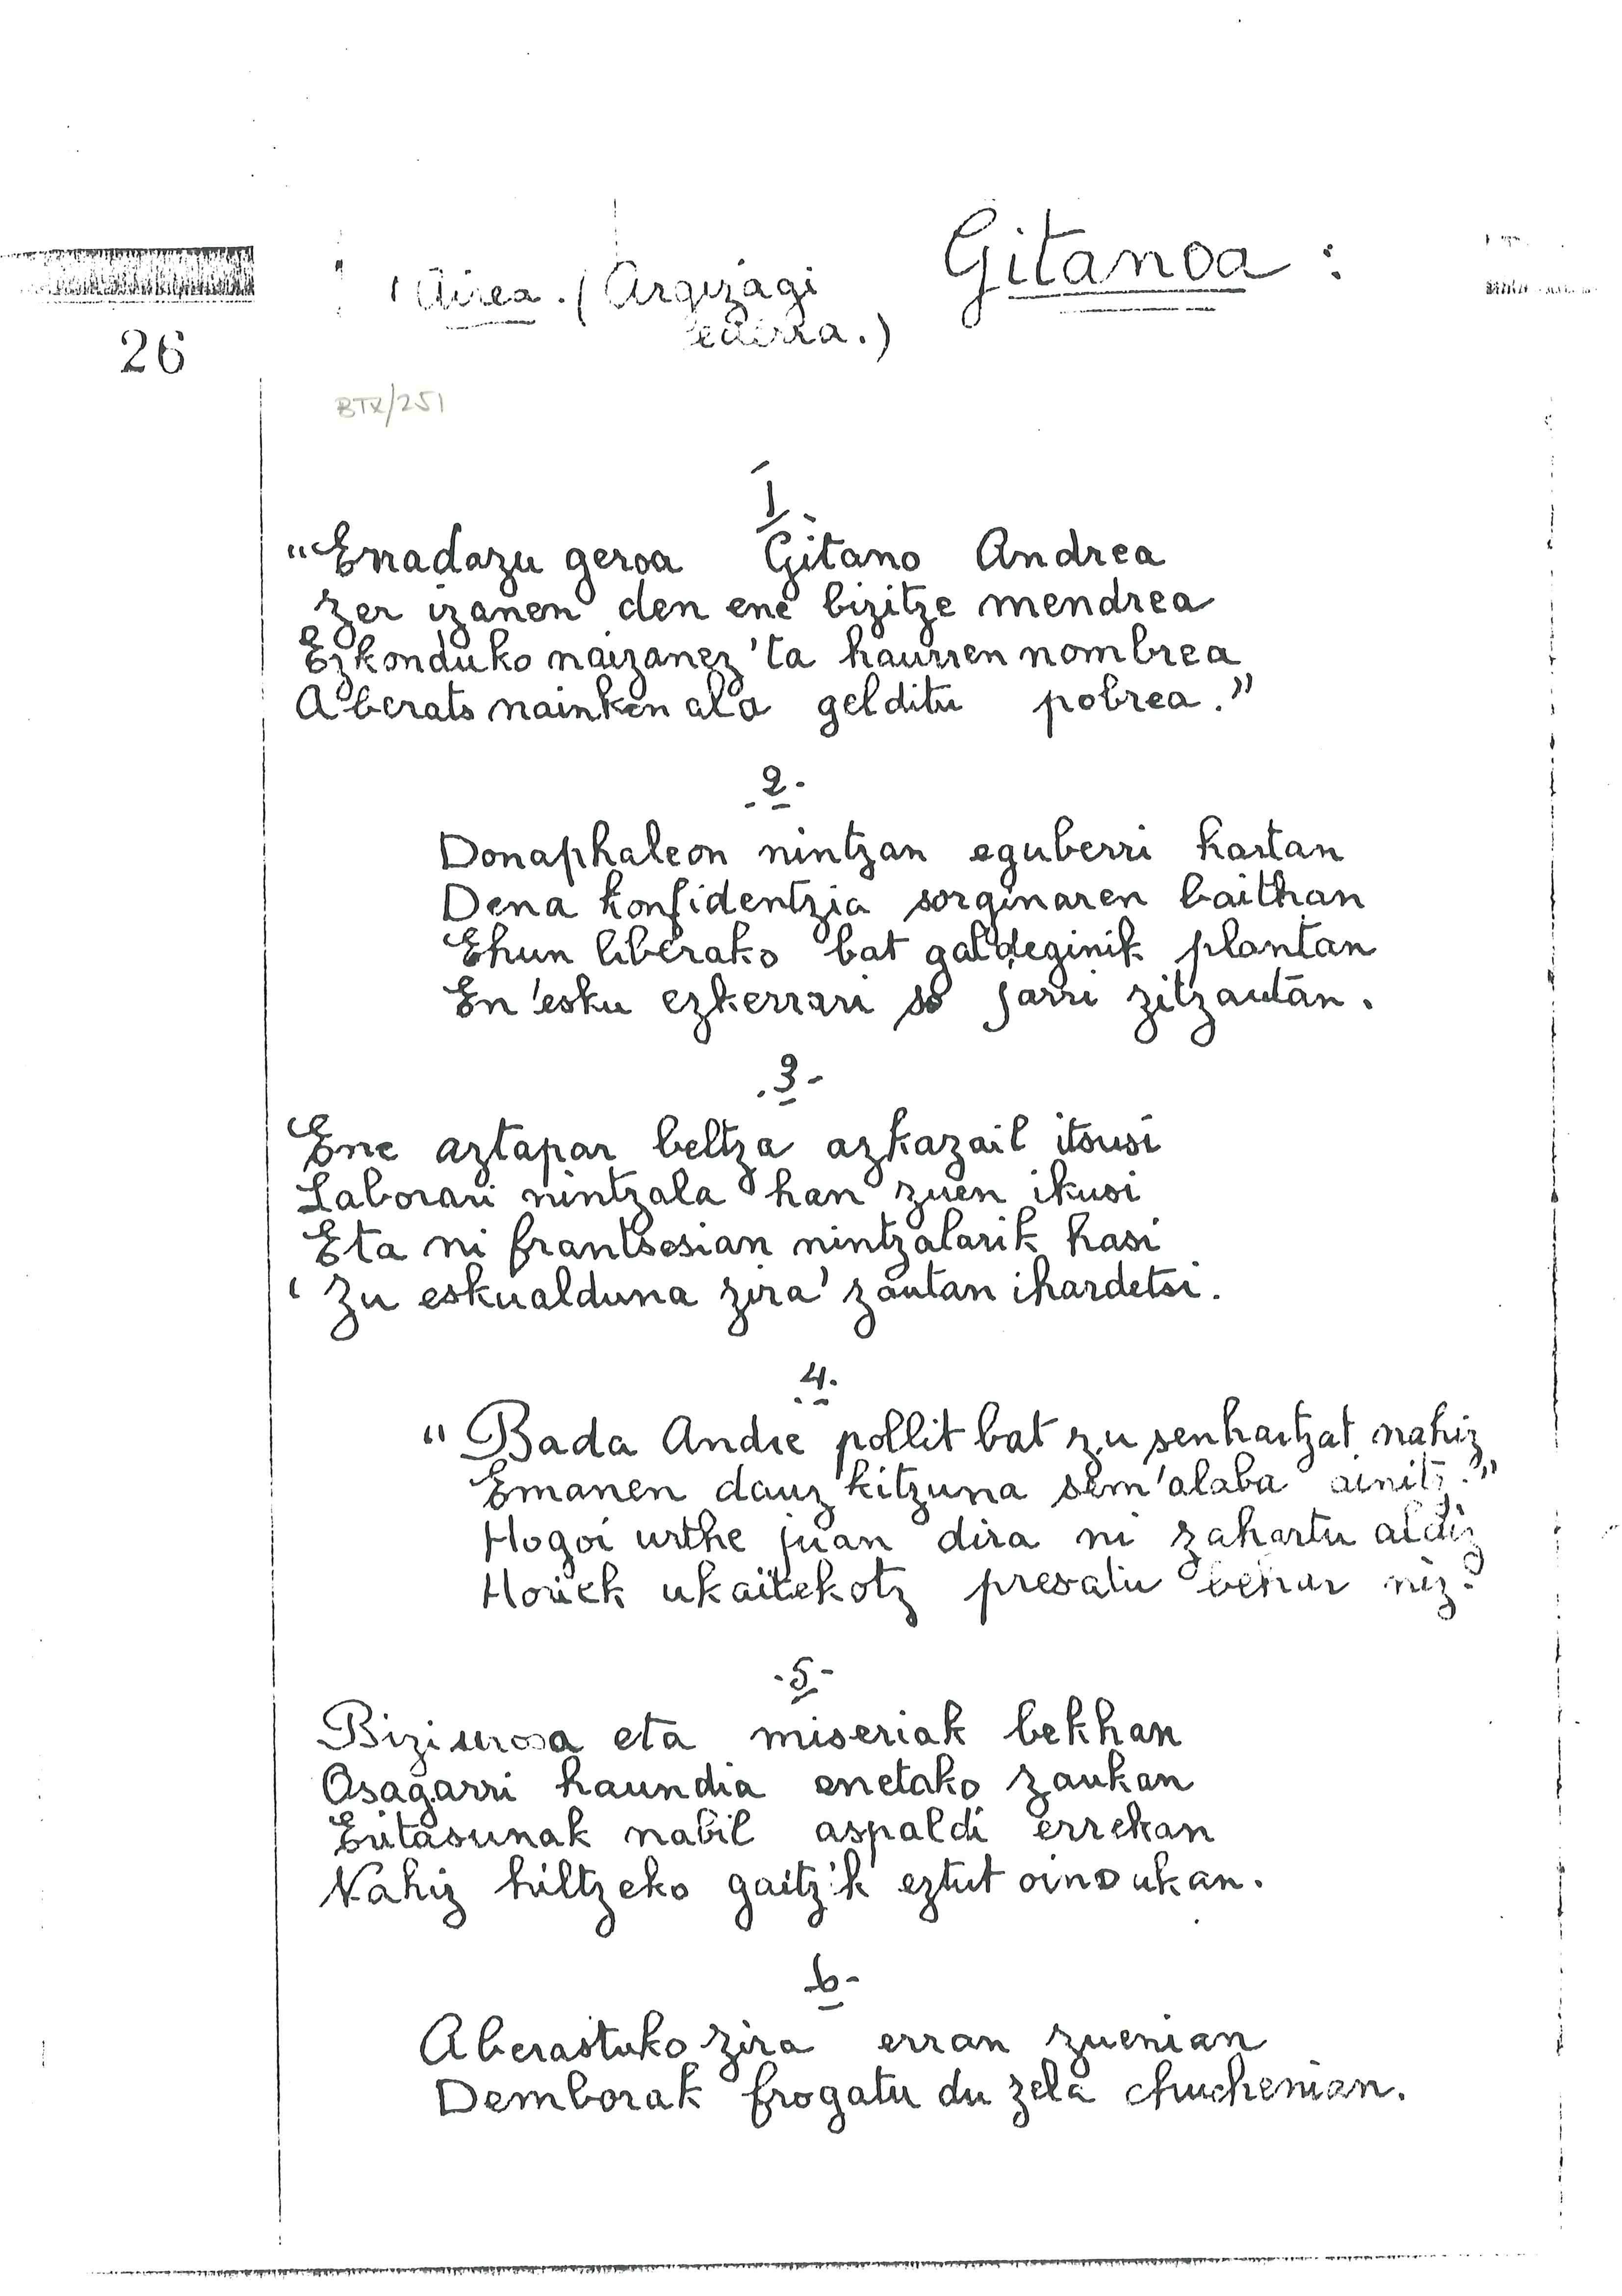 Gitanoa :
Airea. (Argizagi
ederra.)
26
BTX/251
1
"Erradazu geroa Gitano Andrea
Zer izanen den ene bizitze mendrea
Ezkonduko naizanez 'ta haurren nombrea
Aberats nainken ala gelditu pobrea."
.2.
Donaphaleon nintzan eguberri hartan
Dena konfidentzia sorginaren baithan
Ehun liberako bat galdeginik plantan
En'esku ezkerrari so jarri zitzautan.
.3-
Ene aztapar beltza azkazail itsusi
Laborari nintzala han zuen ikusi
Eta ni frantsesian nintzalarik hasi
'Zu eskualduna zira' zautan ihardetsi.
.4.
"Bada Andre pollit bat zu senhartzat nahiz
Emanen dauzkitzuna sem'alaba ainitz."
Hogoi urthe juan dira ni zahartu aldiz
Horiek ukaitekotz presatu behar niz.
-5-
Bizi urosa eta miseriak bekhan
Osagarri haundia enetako zaukan
Eritasunak nabil aspaldi errekan
Nahiz hiltzeko gaitz'k eztut oino ukan.
6-
Aberastuko zira erran zuenian
Demborak frogatu du zela chuchenian.